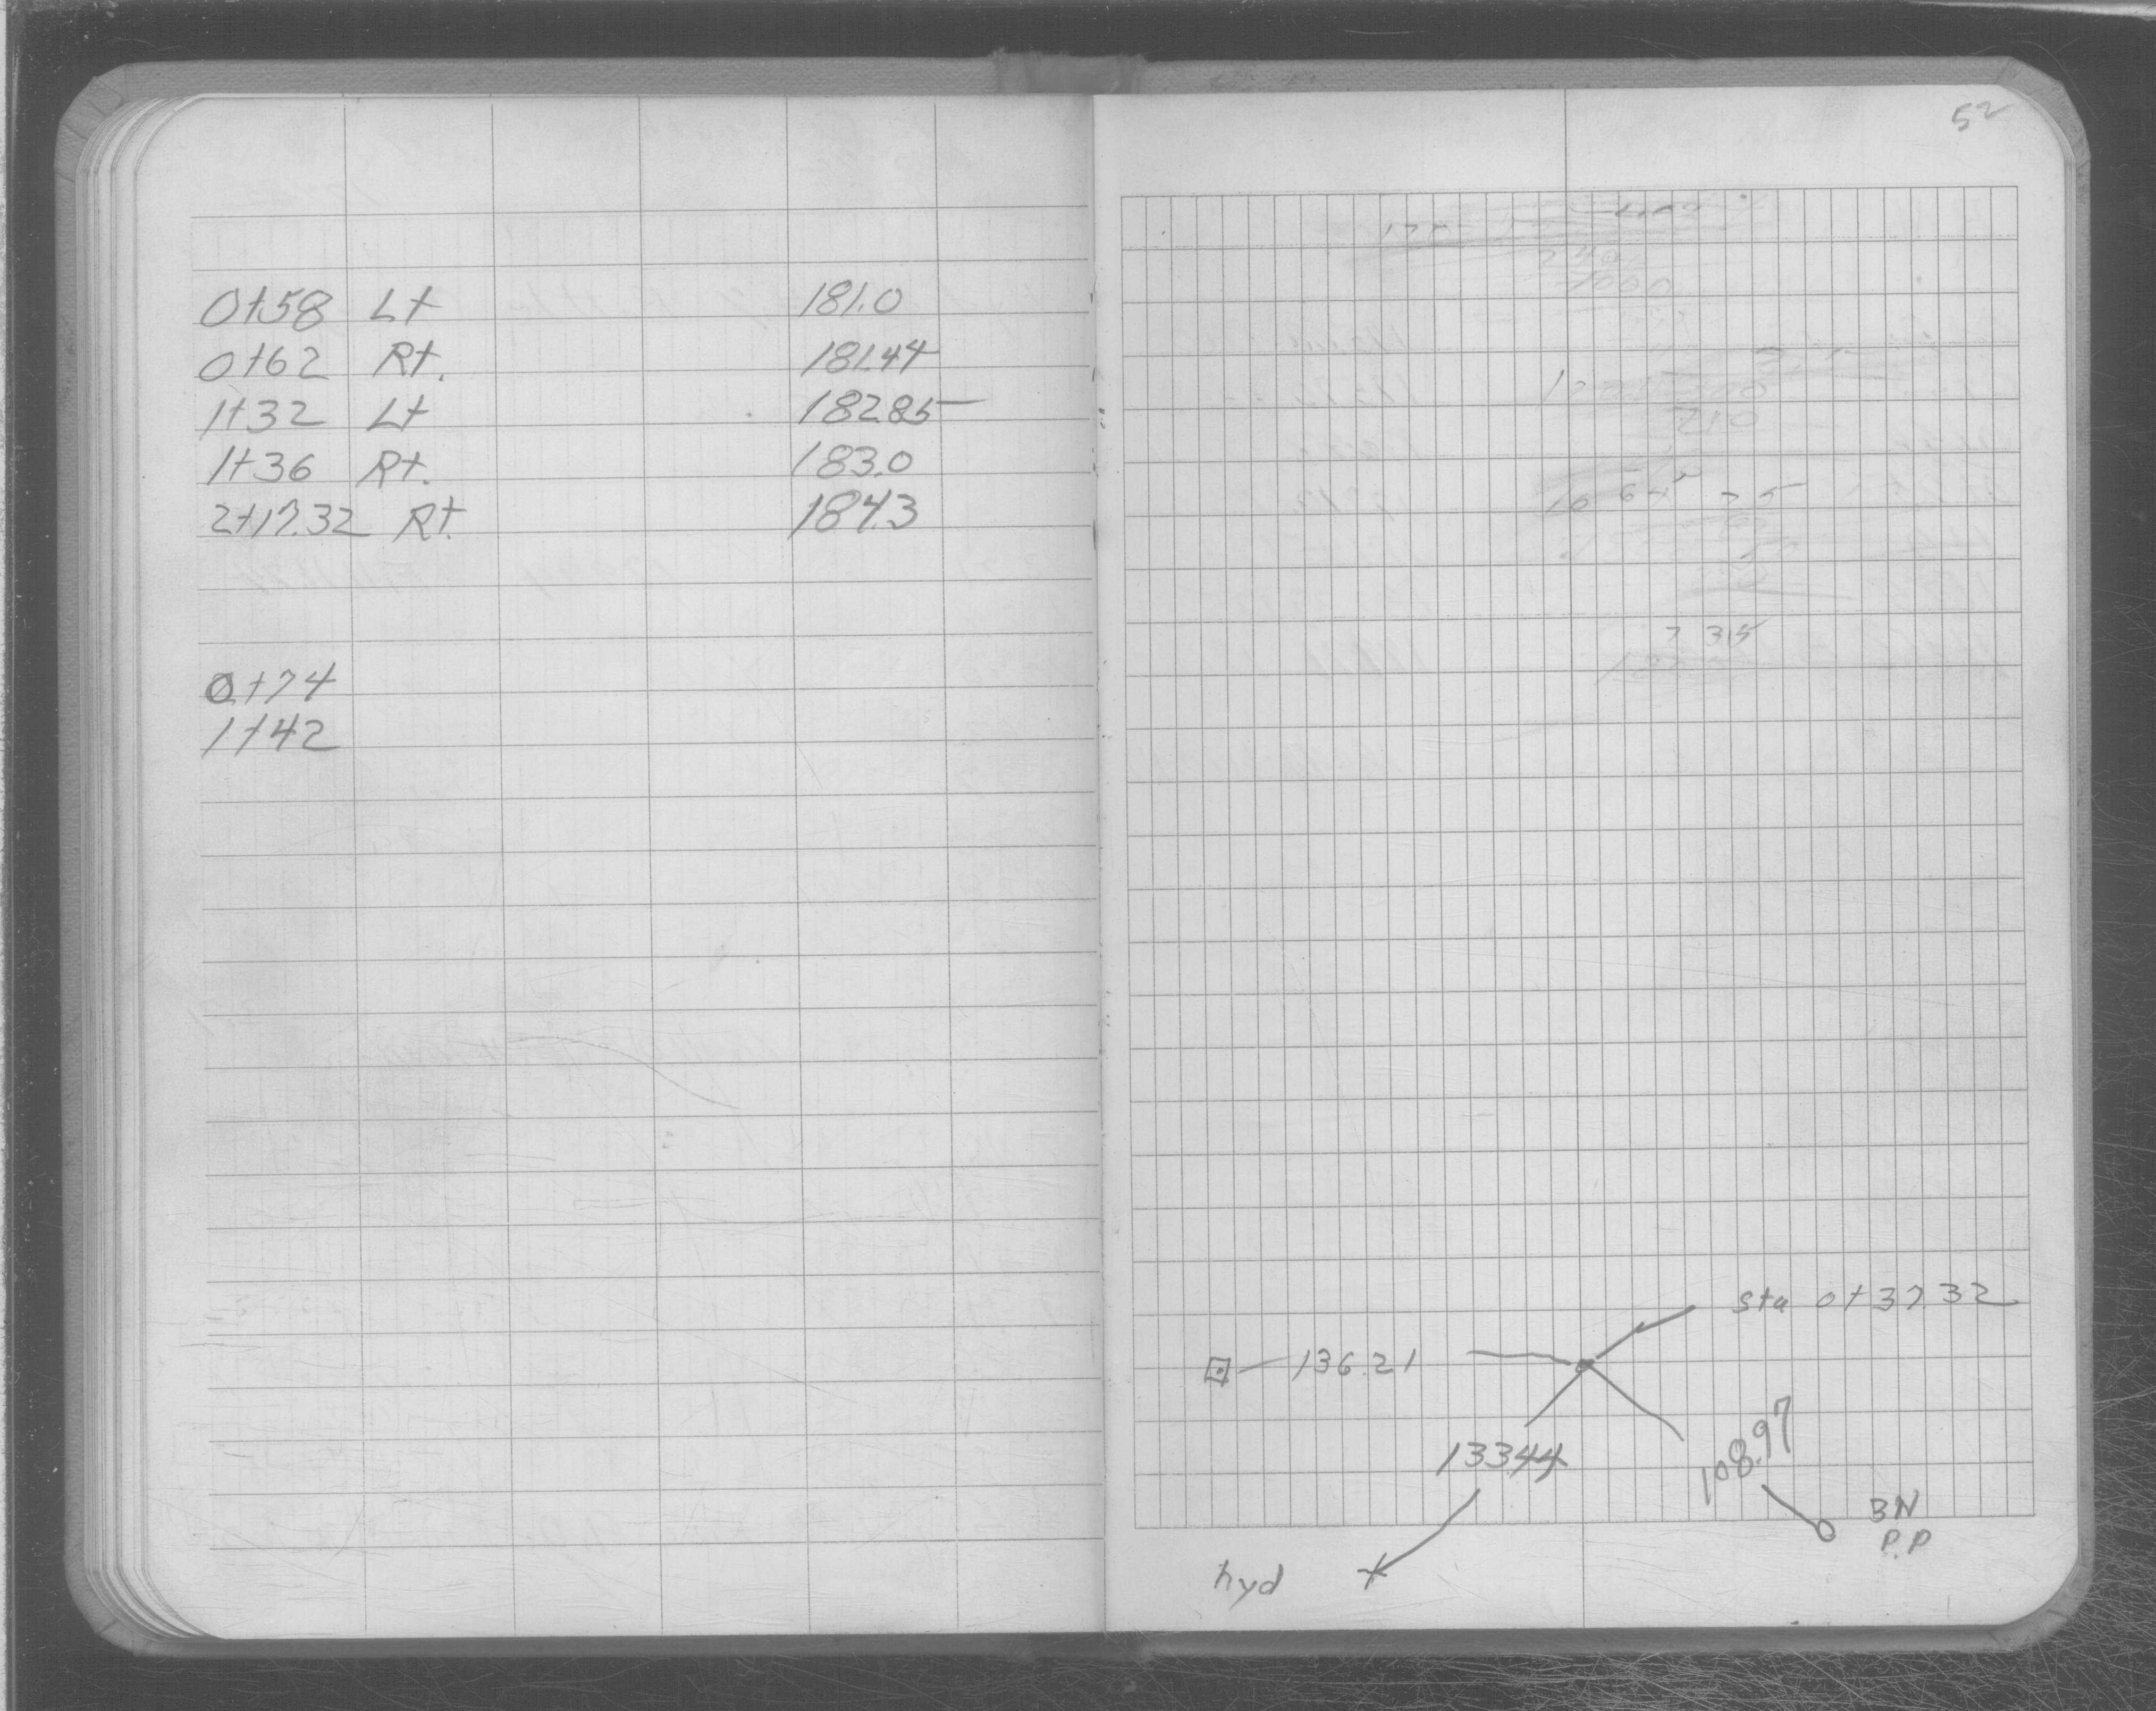 52
0+58 Lt 181.0
0+62 Rt. 181.44
1+32 Lt 182.85
1+36 Rt. 183.0
2+17.32 Rt. 184.3
0+74
1+42
7 35
Sta 0+37.32
136.21
133.44
108.97
3N
P.P
hyd